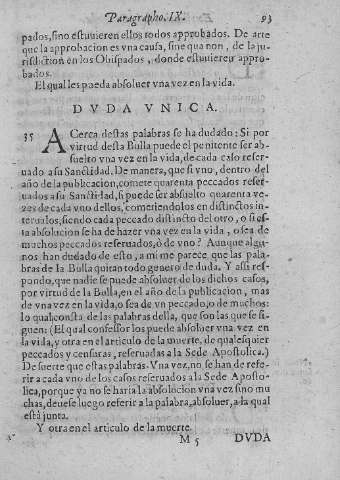 Paragrapho. IX. 93
pados, sino estuvieren ellos todos approbados. De arte
que la approbacion es vna causa, sine qua non, de la ju-
risdiction en los Obispados, donde estuvieren appro-
bados.
El qual les pueda absoluer vna vez en la vida.
DVDA VNICA.
35 ACerca destas palabras se ha dudado: Si por
virtud desta Bulla puede el penitente ser ab-
suelto vna vez en la vida, de cada caso reser-
uado a su Sanctidad. De manera, que si vno, dentro del
año de la publicacion, comete quarenta peccados reser-
uados a su Sanctidad, si puede ser absuelto quarenta ve-
zes de cada vno dellos, cometiendolos en distinctos in-
teruallos, siendo cada peccado distincto del otro, o si es-
ta absolucion se ha de hazer vna vez en la vida, o sea de
muchos peccados reseruados, ò de vno? Aunque algu-
nos han dudado de esto, a mi me parece que las pala-
bras de la Bulla quitan todo genero de duda. Y assi res-
pondo, que nadie se puede absoluer de los dichos casos,
por virtud de la Bulla, en el año de la publicacion, mas
de vna vez en la vida, o sea de vn peccado, o de muchos:
lo qual consta de las palabras della, que son las que se si-
guen: (El qual confessor los puede absoluer vna vez en
la vida, y otra en el articulo de la muerte, de qualesquier
peccados y censuras, reseruadas a la Sede Apostolica.)
De suerte que estas palabras. Vna vez, no se han de refe-
rir a cada vno de los casos reseruados a la Sede Aposto-
lica, porque ya no se haria la absolucion vna vez sino mu
chas, deuese luego referir a la palabra, absoluer, a la qual
està junta.
Y otra en el articulo de la muerte.
M 5 DVDA